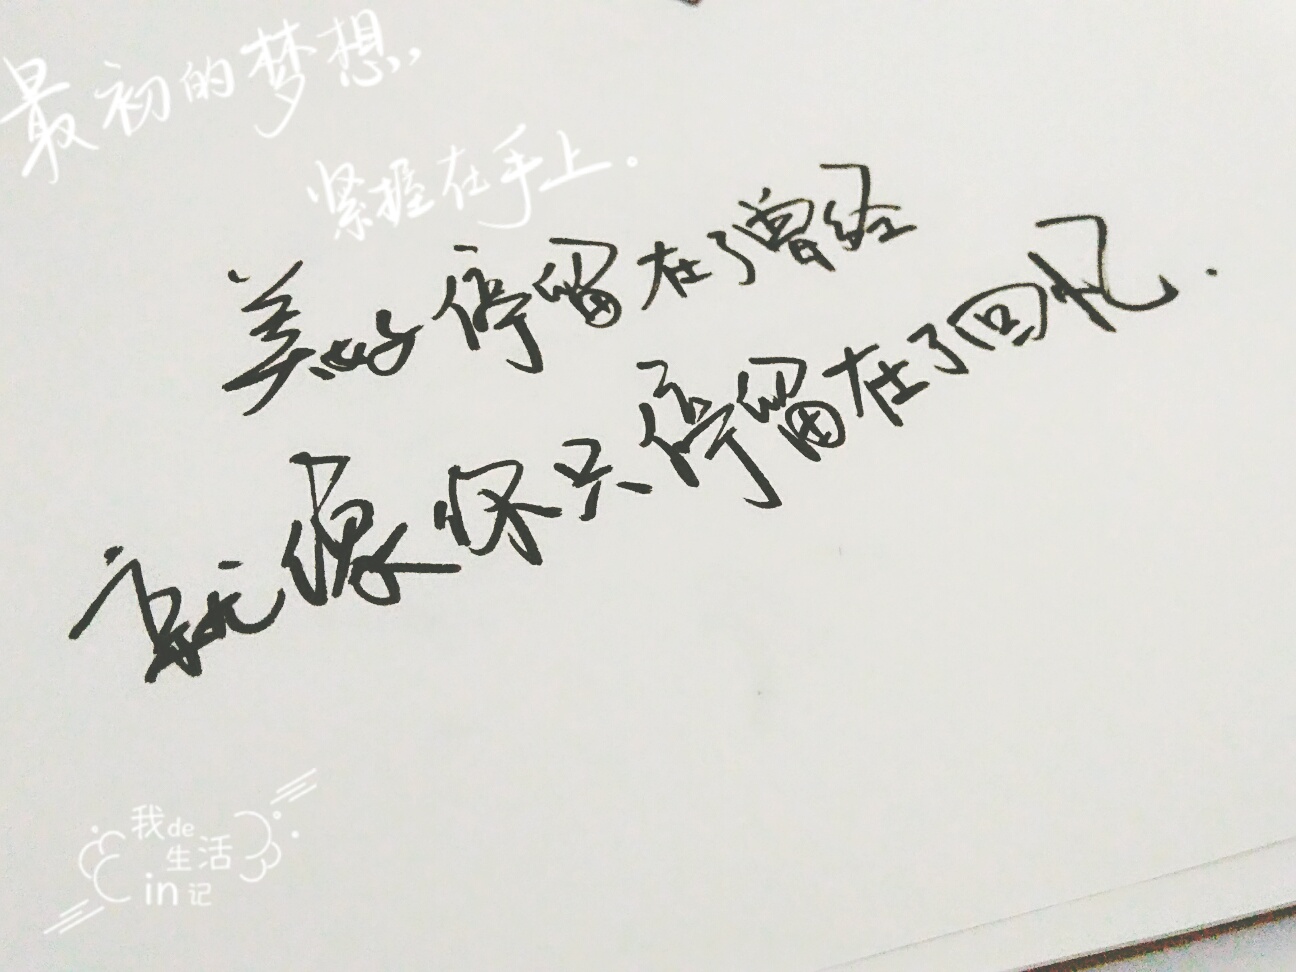 最初的梦想，
紧握在手上。
美好停留在了曾经
就像你只停留在了回忆.
我de
生活
in记